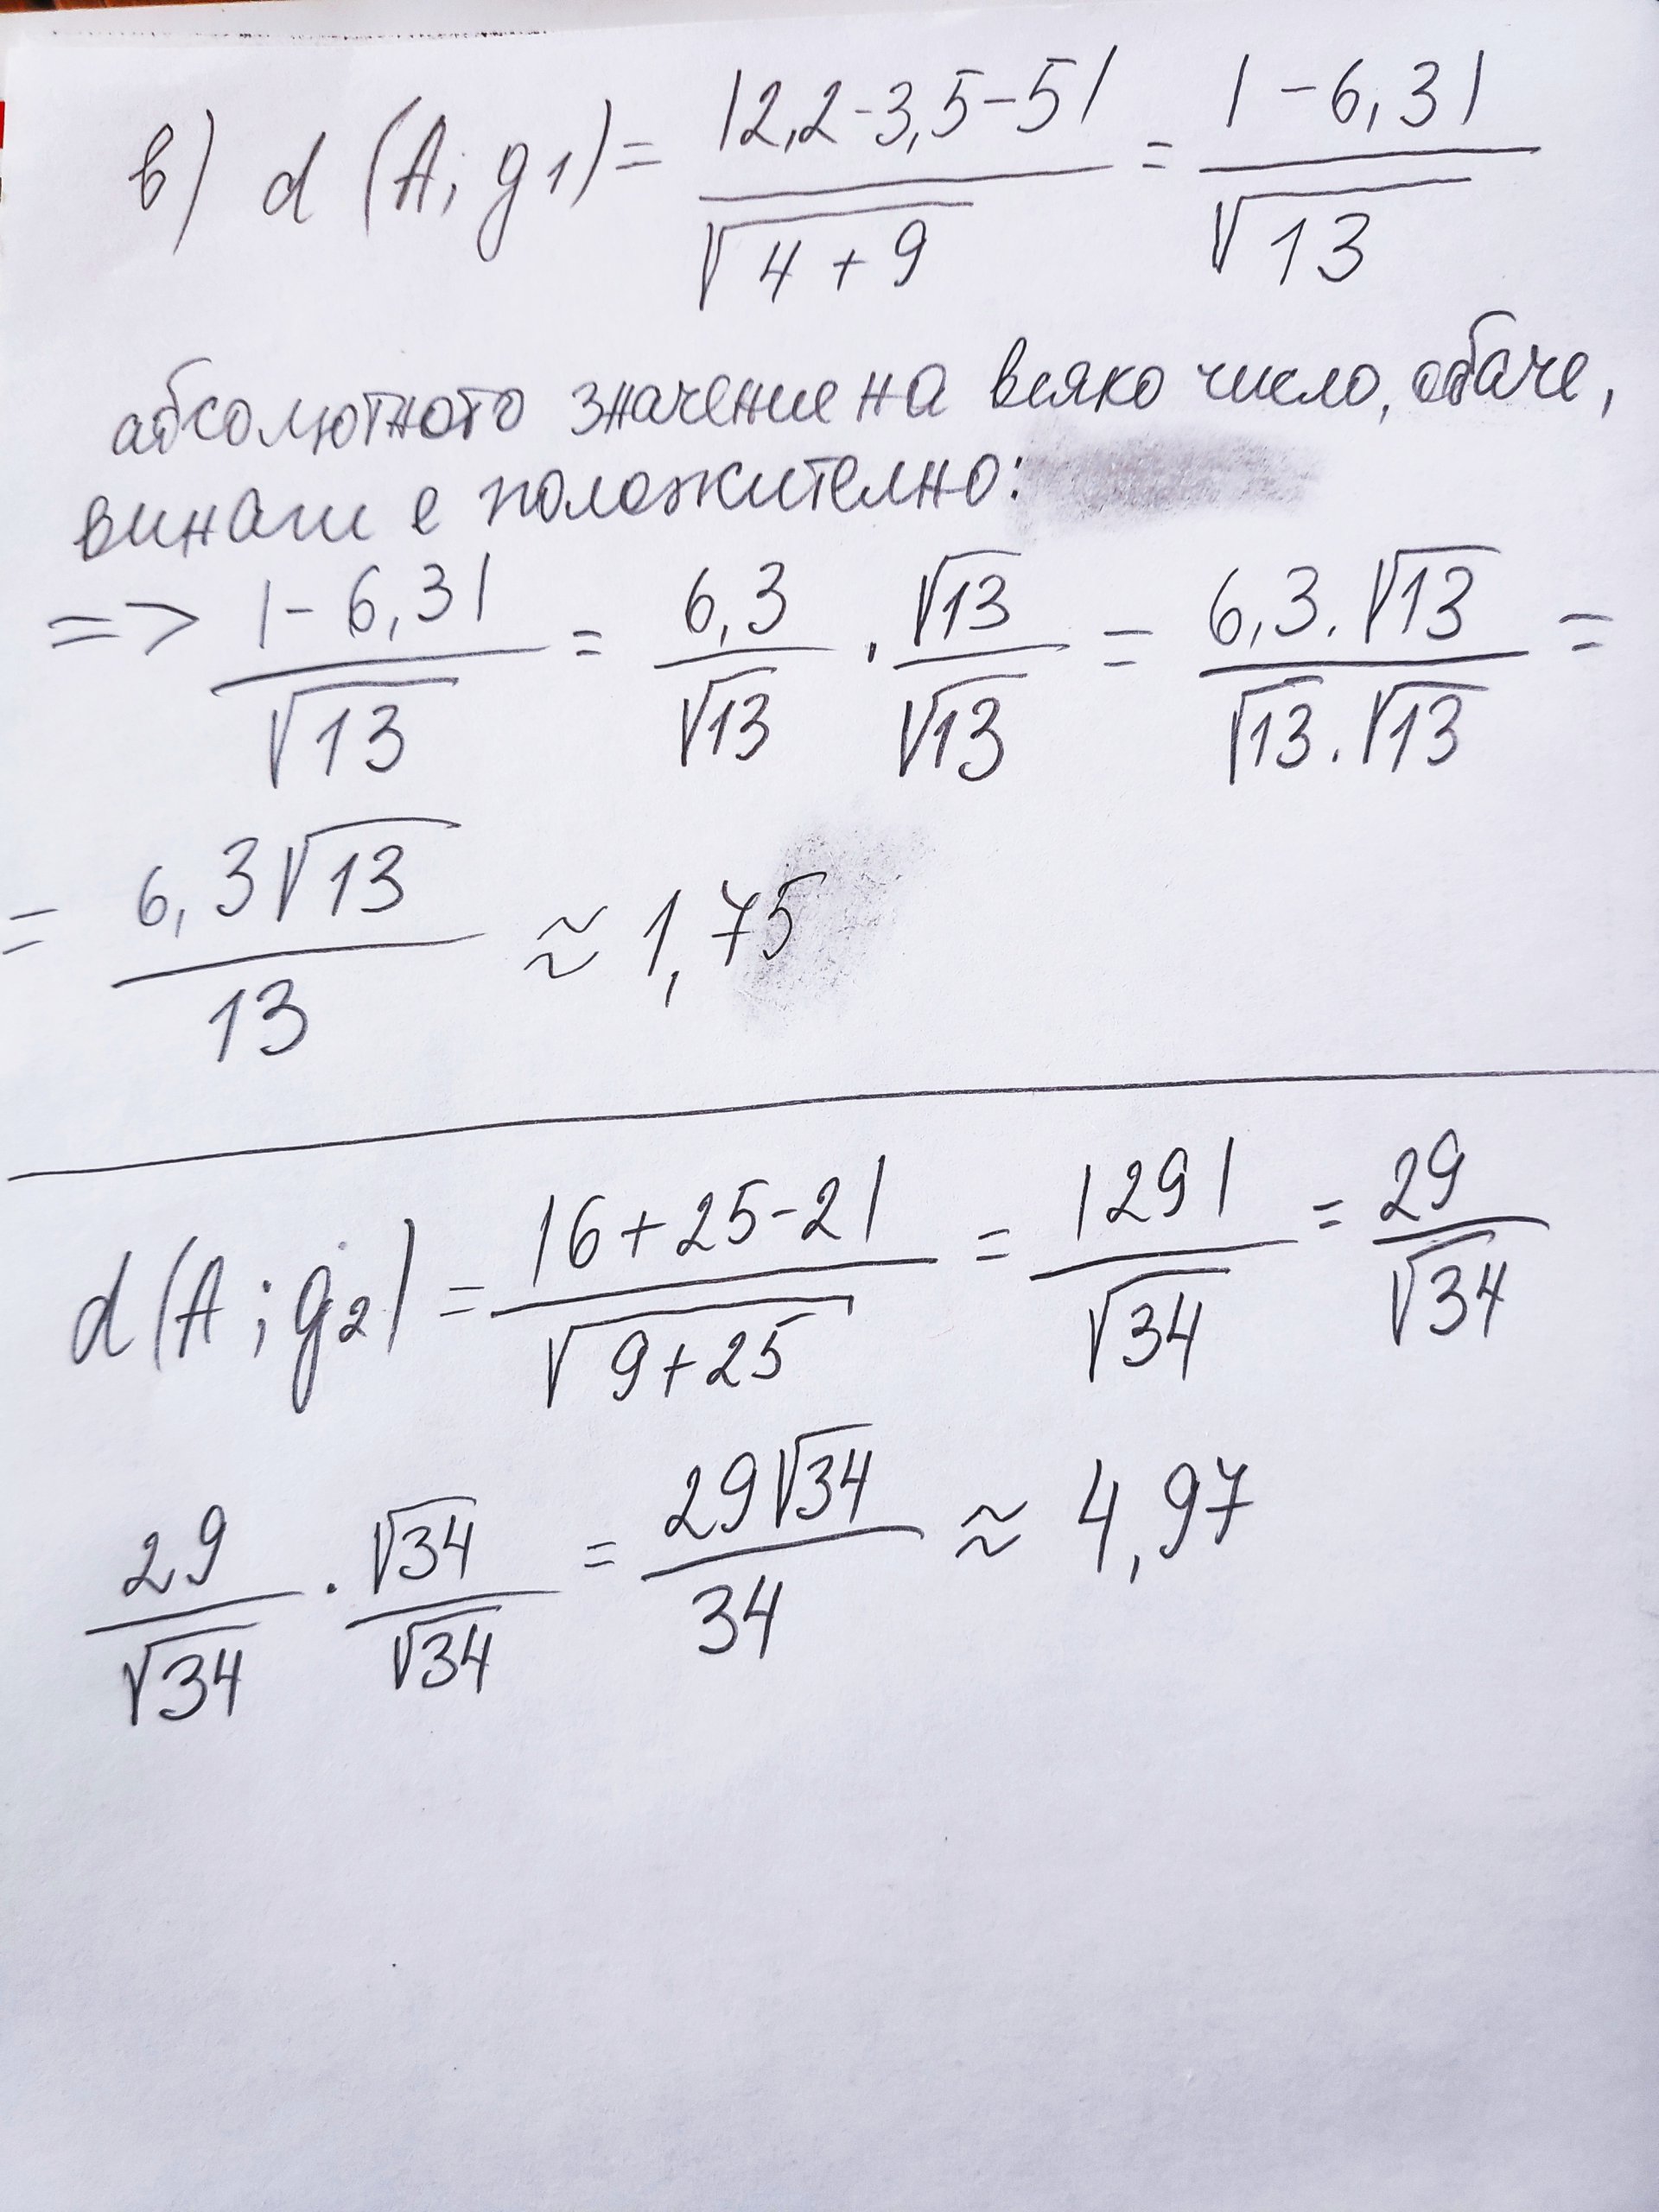 в) d (A; g1) = |2,2-3,5-5| / √4+9 = |-6,3| / √13
абсолютното значение на всяко число, обаче,
винаги е положително:
=> |-6,3| / √13 = 6,3 / √13 . √13 / √13 = 6,3.√13 / √13.√13 =
= 6,3√13 / 13 ≈ 1,75
d(A;g2) = |6+25-2| / √9+25 = |29| / √34 = 29 / √34
29 / √34 . √34 / √34 = 29√34 / 34 ≈ 4,97